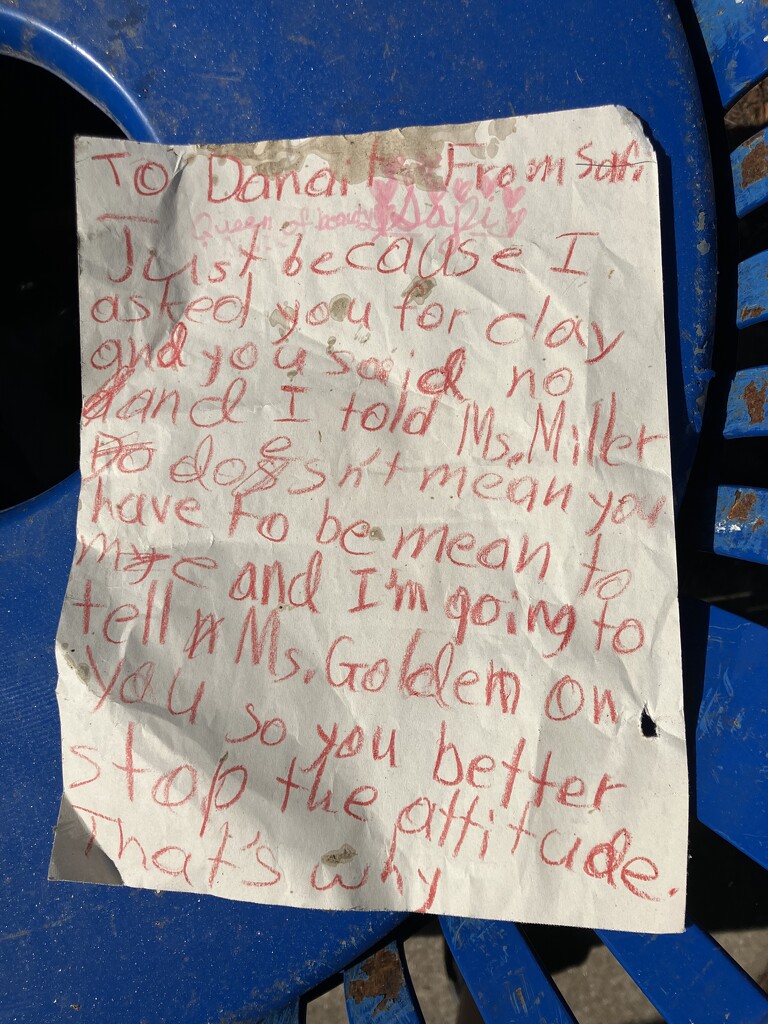 To Danait From
Queen of beauty Safi
Just because I
asked you for clay
and you said no
and I told Ms. Miller
doesn't mean you
have to be mean to
me and I'm going to
tell Ms. Goldem on
you so you better
stop the attitude.
That's why